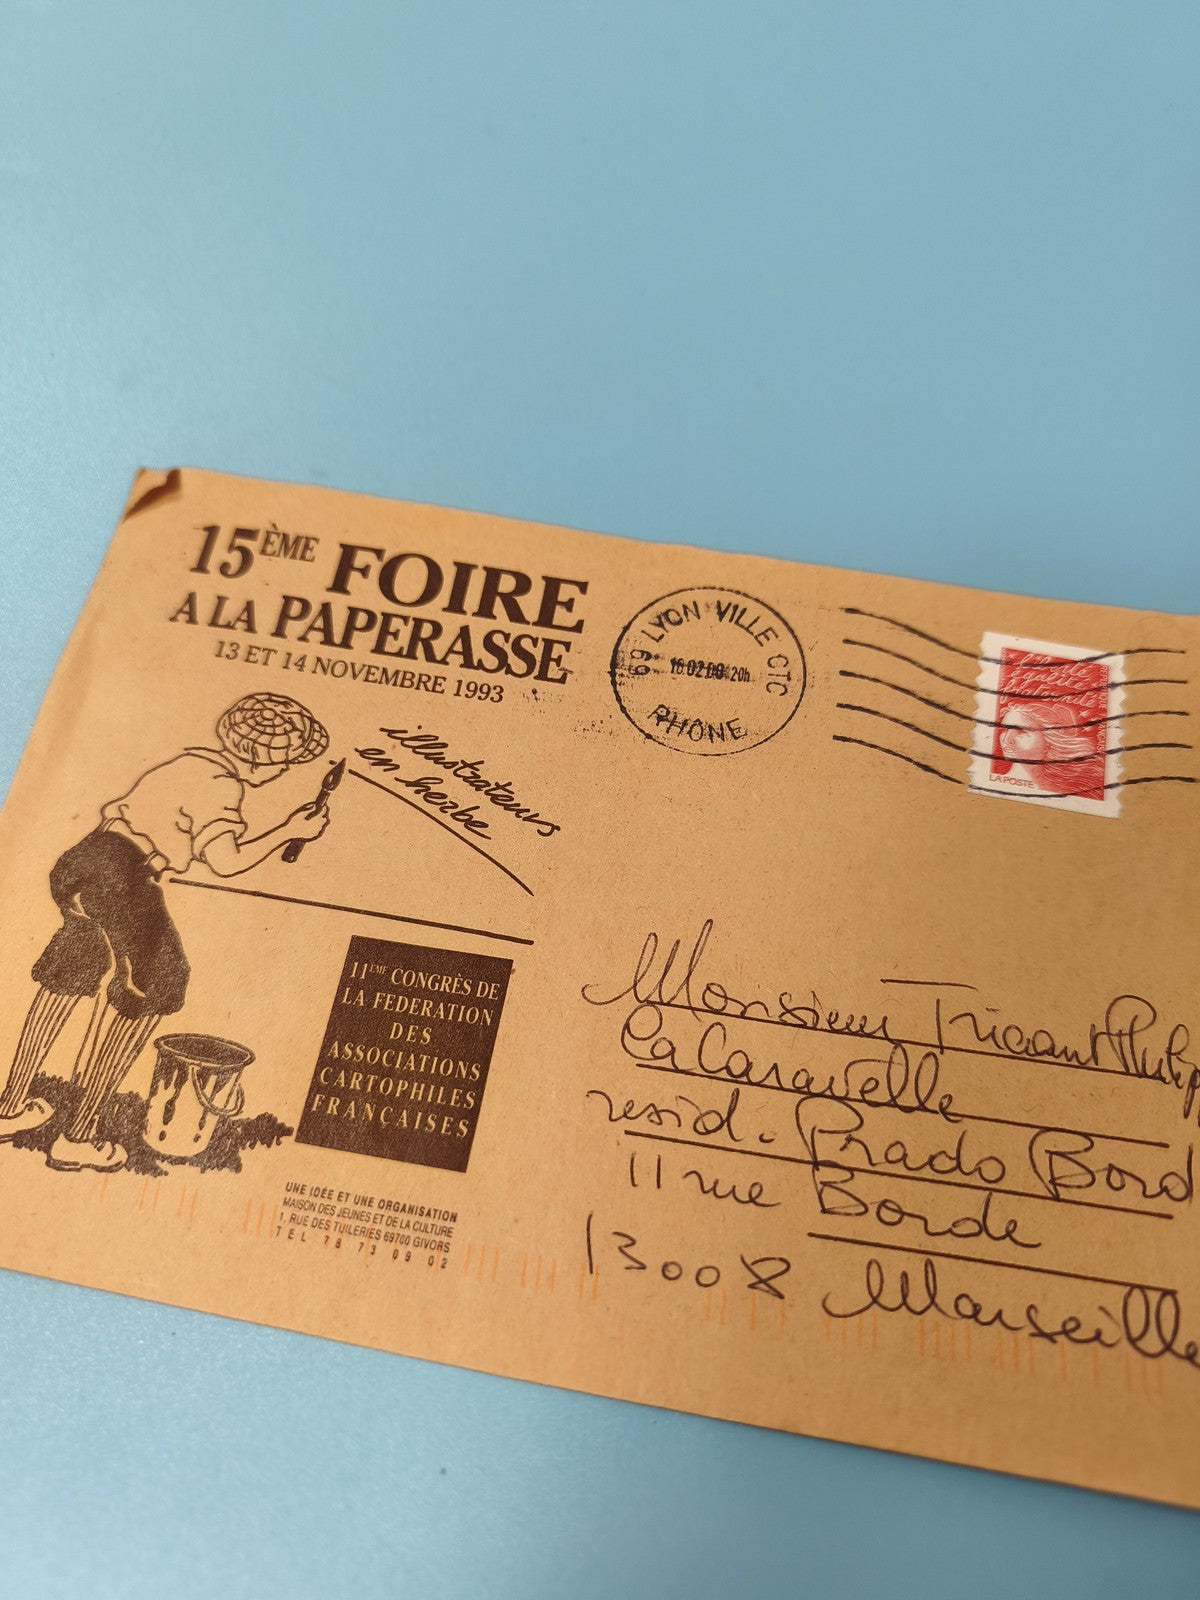 15ÈME FOIRE
A LA PAPERASSE
13 ET 14 NOVEMBRE 1993
illustrateurs
en herbe
11EME CONGRÈS DE
LA FEDERATION
DES
ASSOCIATIONS
CARTOPHILES
FRANÇAISES
UNE IDÉE ET UNE ORGANISATION
MAISON DES JEUNES ET DE LA CULTURE
1, RUE DES TUILERIES 69700 GIVORS
TEL 78 73 09 02
69 LYON VILLE CTC
16.02.00 20h
RHONE
Liberté
égalité
fraternité
LA POSTE
Monsieur
La Caravelle
resid. Prado Bord
11 rue Borde
13008 Marseille